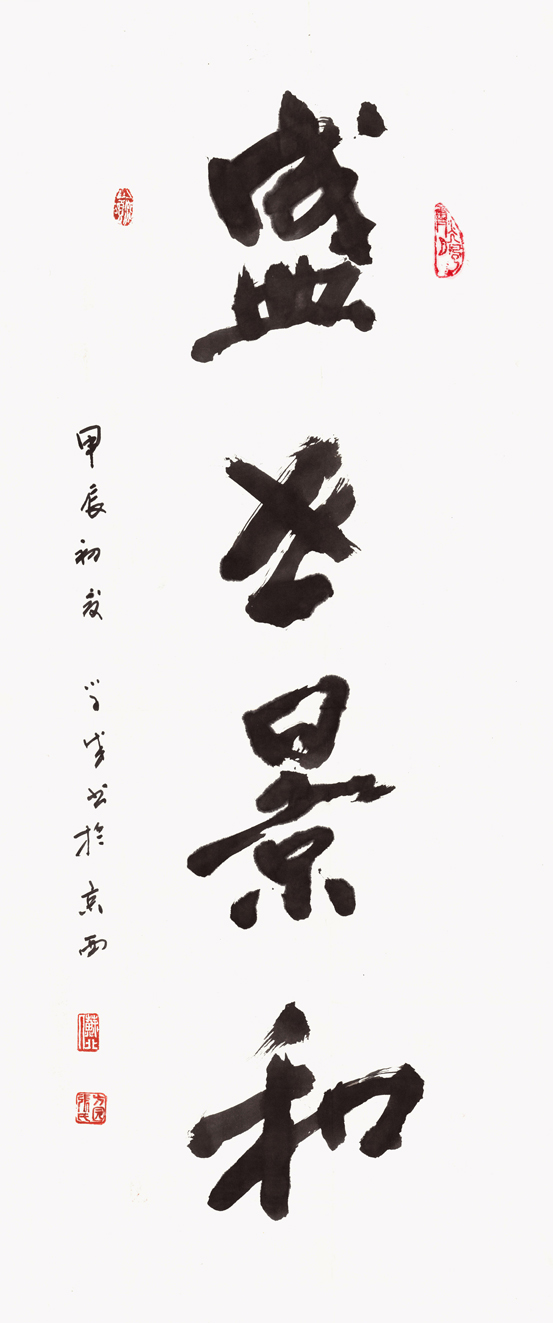 盛世景和
甲辰初夏 学书於京西